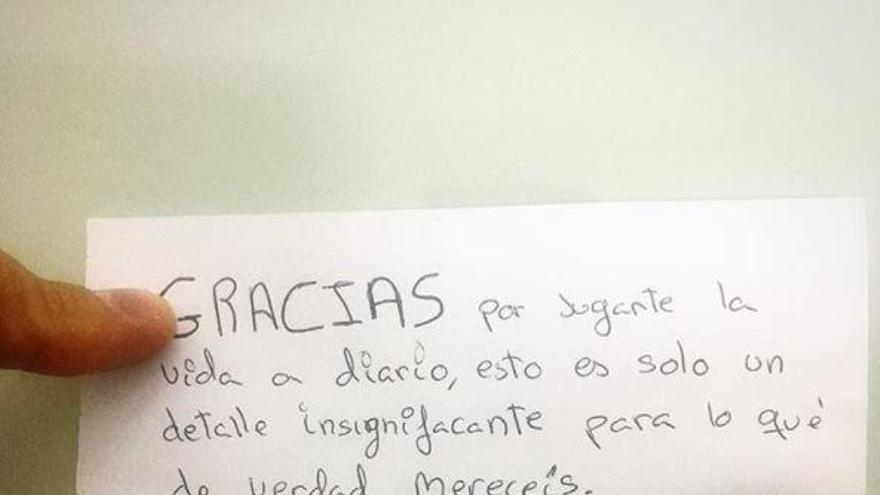 GRACIAS por jugarte la
vida a diario, esto es solo un
detalle insignifacante para lo qué
de verdad mereceis.